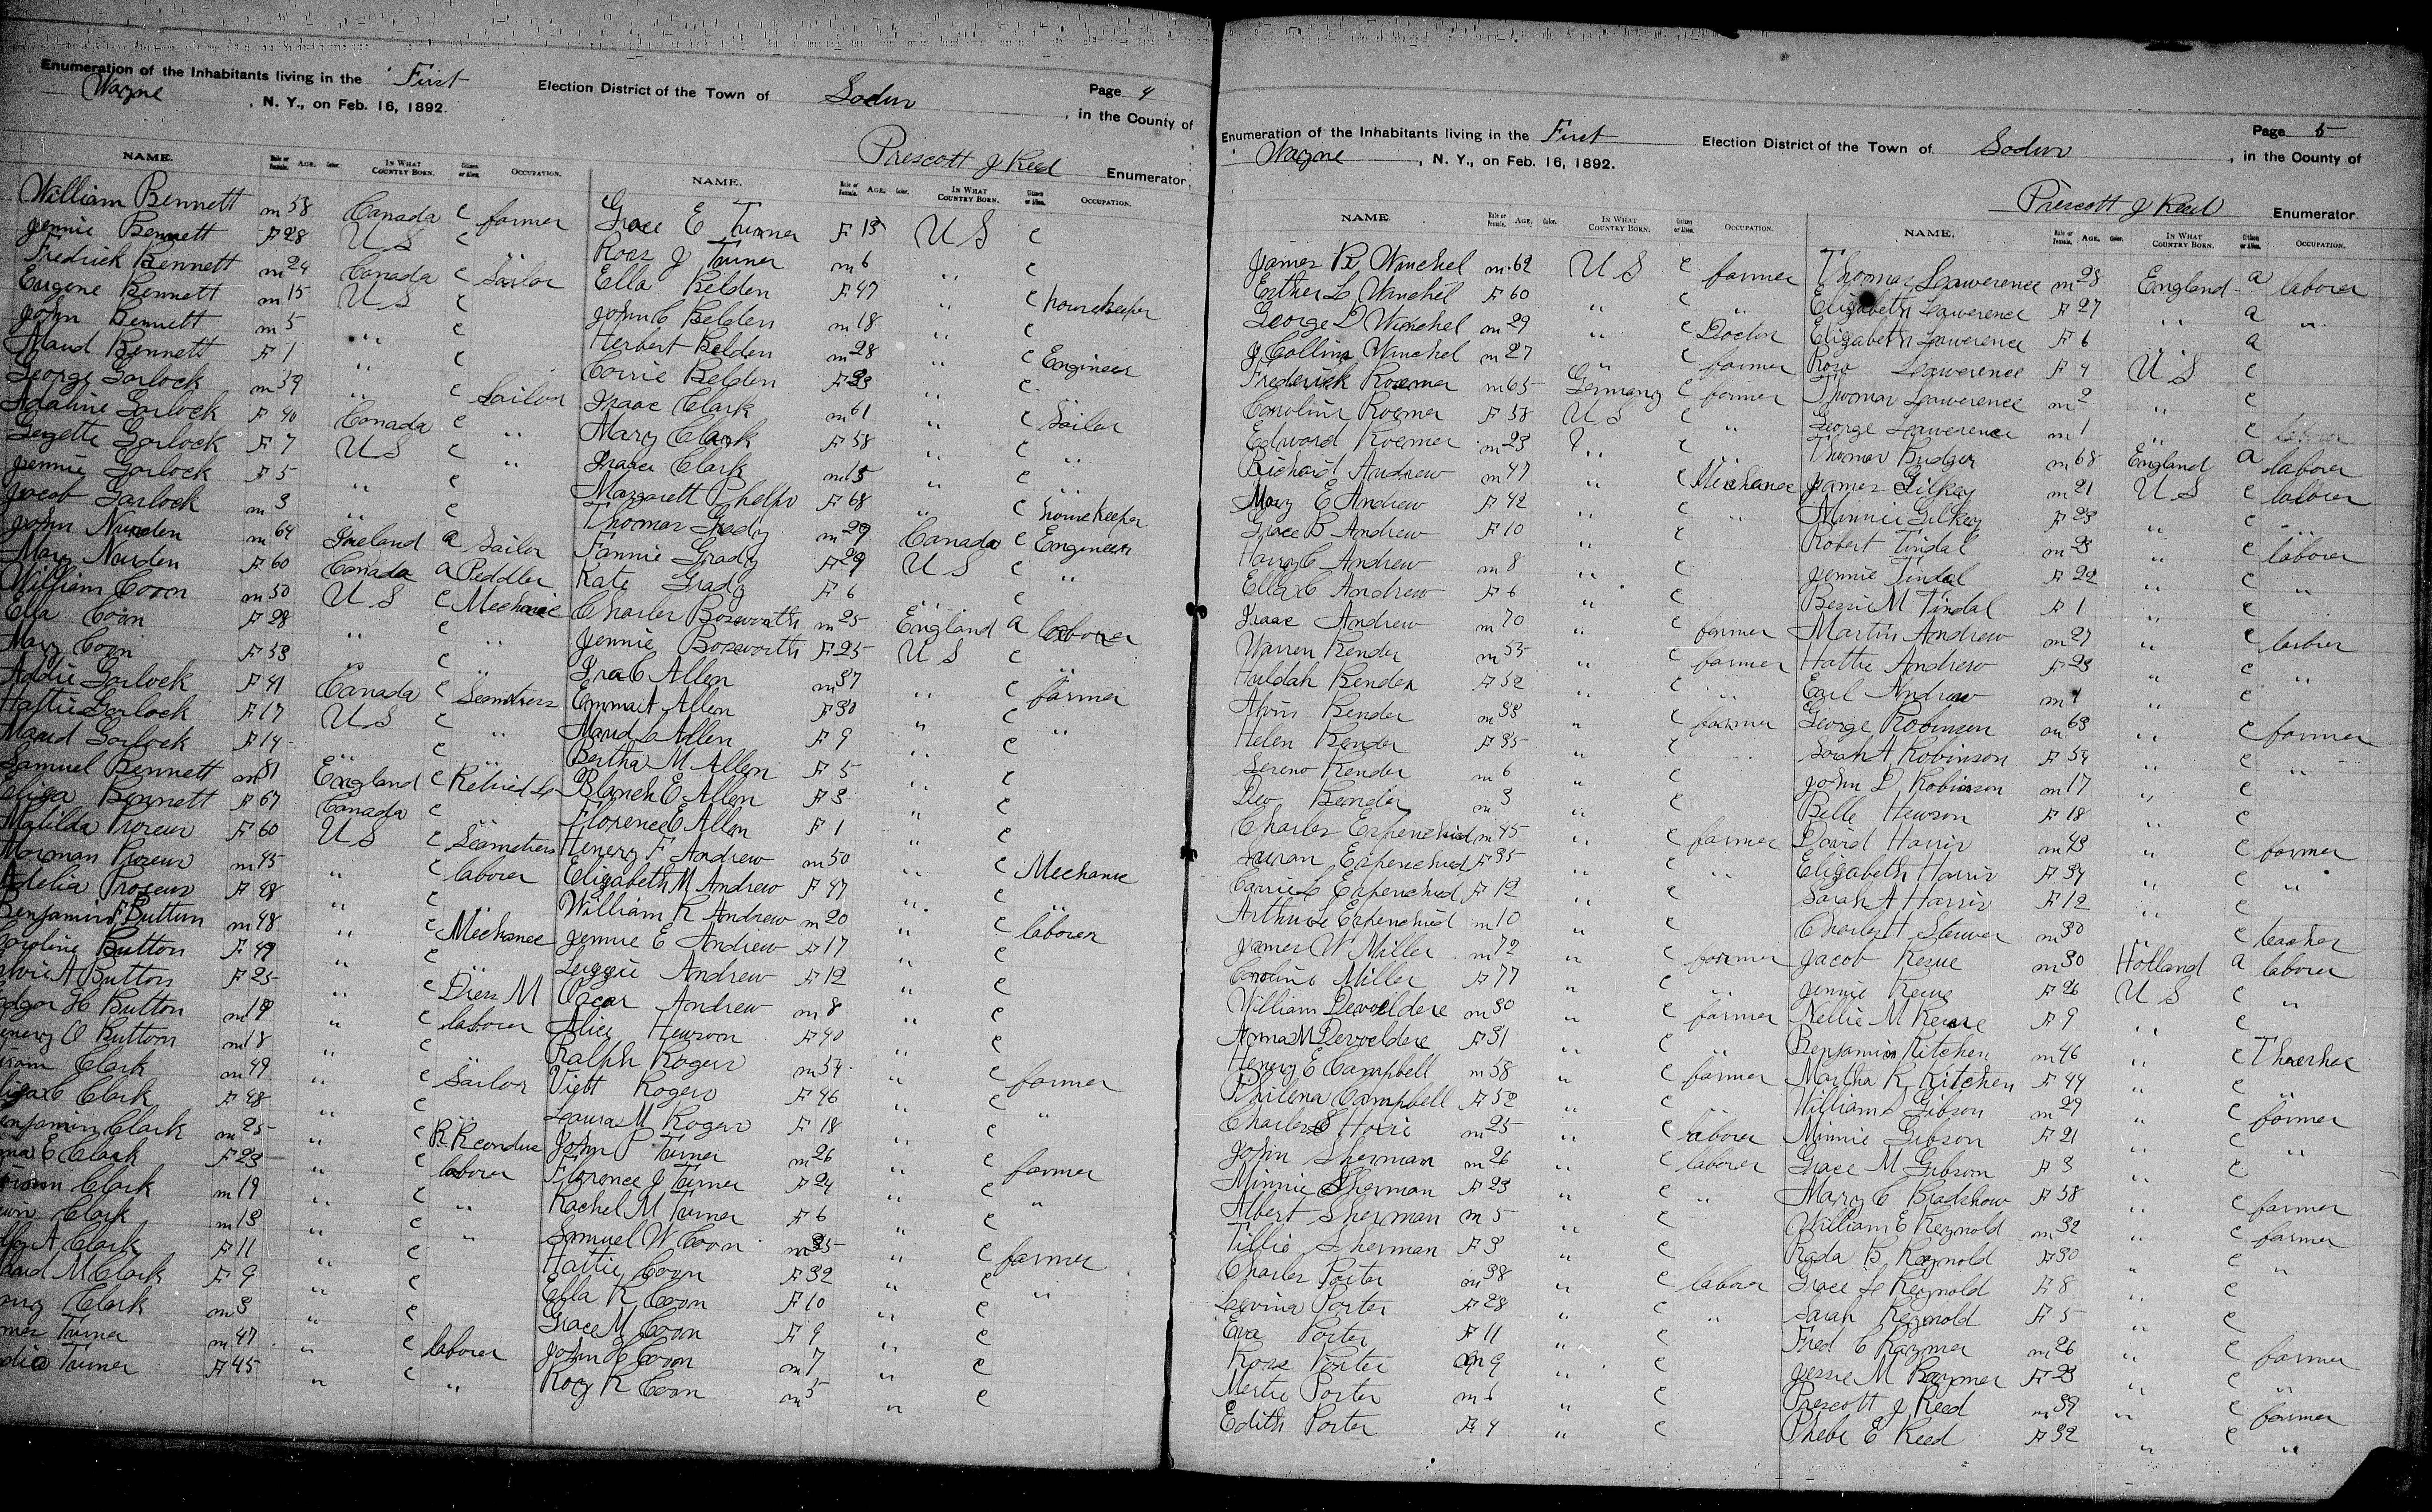 Enumeration of the Inhabitants living in the First Election District of the Town of Sodus Page 4
Wayne, N. Y., on Feb. 16, 1892. , in the County of
Prescott J Reed Enumerator.
NAME. Male or Female. AGE. Color. IN WHAT COUNTRY BORN. Citizen or Alien. OCCUPATION.
William Bennett m 58 Canada c farmer
Jennie Bennett F 28 U S c
Fredrick Bennett m 24 Canada c Sailor
Eugene Bennett m 15 U S c
John Bennett m 5 " c
Maud Bennett F 1 " c
George Garlock m 39 " c Sailor
Adaline Garlock F 40 Canada c "
Gezette Garlock F 7 U S c "
Jennie Garlock F 5 " c
Jacob Garlock m 3 " c
John Nurden m 64 Ireland a Sailor
Mary Nurden F 60 Canada a Peddler
William Coon m 30 U S c Mechanic
Ella Coon F 28 " c "
Mary Coon F 53 " c
Addie Garlock F 41 Canada c Seamstress
Hattie Garlock F 17 U S c "
Maud Garlock F 14 " c "
Samuel Bennett m 81 England c Retired
Eliza Bennett F 67 Canada c
Matilda Proseus F 60 U S c Seamstress
Norman Proseus m 45 " c laborer
Adelia Proseus F 48 " c "
Benjamin F Button m 48 " c Mechanic
Caroline Button F 49 " c "
A Button F 25 " c Dress M
H Button m 19 " c laborer
O Button m 18 " c
Clark m 49 " c Sailor
C Clark F 48 " c
Benjamin Clark m 25 " c R R
E Clark F 23 " c laborer
Clark m 19 " c "
Clark m 13 " c "
A Clark F 11 " c
M Clark F 9 " c
Clark m 3 " c
Turner m 47 " c laborer
Turner F 45 " c "
NAME. Male or Female. AGE. Color. IN WHAT COUNTRY BORN. Citizen or Alien. OCCUPATION.
Grace E Turner F 13 U S c
Ross J Turner m 6 " c
Ella Belden F 47 " c housekeeper
John C Belden m 18 "
Herbert Belden m 28 " c Engineer
Carrie Belden F 23 " c
Isaac Clark m 61 " c Sailor
Mary Clark F 58 " c "
Isaac Clark m 15 " c
Margarett Phelps F 68 " c housekeeper
Thomas Grady m 29 Canada c Engineer
Fannie Grady F 29 U S c "
Kate Grady F 6 " c
Charles Bosworth m 25 England a laborer
Jennie Bosworth F 25 U S c
Ira C Allen m 37 " c farmer
Emma Allen F 30 " c "
Maud L Allen F 9 " c
Bertha M Allen F 5 " c
Blanch E Allen F 3 " c
Florence C Allen F 1 " c
Henery F Andrew m 50 " c Mechanic
Elizabeth M Andrew F 47 " c
William R Andrew m 20 " c laborer
Jennie E Andrew F 17 "
Lizzie Andrew F 12 " c
Oscar Andrew m 8 " c
Alice Hewson F 40 " c
Ralph Rogers m 54 " c farmer
Viett Rogers F 46 " c "
Laura M Rogers F 18 " c
John P Turner m 26 " c farmer
Florence J Turner F 24 " c "
Rachel M Turner F 6 " c
Samuel W Coon m 35 " c farmer
Hattie Coon F 32 " c "
Ella R Coon F 10 " c
Grace M Coon F 9 " c
John H Coon m 7 " c
Roy R Coon m 5 " c
Enumeration of the Inhabitants living in the First Election District of the Town of Sodus Page 5
Wayne, N. Y., on Feb. 16, 1892. , in the County of
Prescott J Reed Enumerator.
NAME. Male or Female. AGE. Color. IN WHAT COUNTRY BORN. Citizen or Alien. OCCUPATION.
James R Winchel m 62 U S c farmer
Esther L Winchel F 60 " c "
George D Winchel m 29 " c Doctor
J Collins Winchel m 27 " c farmer
Frederick Roemer m 65 Germany c farmer
Caroline Roemer F 58 U S c "
Edward Roemer m 23 " c
Richard Andrew m 47 " c Mechanic
Mary E Andrew F 42 " c "
Grace B Andrew F 10 " c
Harry C Andrew m 8 " c
Ella C Andrew F 6 " c
Isaac Andrew m 70 " c farmer
Warren Render m 55 " c farmer
Huldah Render F 52 " c "
Alvin Render m 33 " c farmer
Helen Render F 35 " c
Sereno Render m 6 " c
Render m 3 " c
Charles Espenchied m 45 " c farmer
Susan Espenchied F 35 " c "
Carrie L Espenchied F 12 " c
Arthur L Espenchied m 10 " c
James W Miller m 72 " c farmer
Caroline Miller F 77 " c "
William Devoeldere m 30 " c farmer
Anna M Devoeldere F 31 " c "
Henry E Campbell m 58 " c farmer
Philena Campbell F 52 " c "
Charles m 25 " c laborer
John Sherman m 26 " c laborer
Minnie Sherman F 23 " c "
Albert Sherman m 5 " c
Tillie Sherman F 3 " c
Charles Porter m 38 " c laborer
Lavina Porter F 28 " c "
Eva Porter F 11 " c
Ross Porter m 9 " c
Mertie Porter m 6 " c
Edith Porter F 4 " c
NAME. Male or Female. AGE. Color. IN WHAT COUNTRY BORN. Citizen or Alien. OCCUPATION.
Thomas Lawerence m 28 England a laborer
Elizabeth Lawerence F 27 " a "
Elizabeth Lawerence F 6 " a
Rose Lawerence F 4 U S c
Thomas Lawerence m 2 " c
George Lawerence m 1 " c
Thomas m 68 England a laborer
James Gilkey m 21 U S c laborer
Minnie Gilkey F 23 " c "
Robert Tindal m 23 " c laborer
Jennie Tindal F 22 " c "
Bessie M Tindal F 1 " c
Martin Andrew m 27 " c laborer
Hattie Andrew F 23 " c "
Earl Andrew m 1 " c
George Robinson m 63 " c farmer
Sarah A Robinson F 54 " c "
John D Robinson m 17 " c
Belle Hewson F 18 " c
David Harris m 43 " c farmer
Elizabeth Harris F 34 " c "
Sarah A Harris F 12 " c
Charles H Steuver m 30 " c teacher
Jacob m 30 Holland a laborer
Jennie F 26 U S c "
Nellie M F 9 " c
Benjamin Kitchen m 46 " c
Martha R Kitchen F 44 " c "
William S Gibson m 29 " c farmer
Minnie Gibson F 21 " c "
Grace M Gibson F 3 " c
Mary C Bradshaw F 58 " c farmer
William E Reynold m 32 " c farmer
Rada B Reynold F 30 " c "
Grace L Reynold F 8 " c
Sarah Reynold F 5 " c
Fred C Raymer m 26 " c farmer
Jessie M Raymer F 23 " c "
Prescott J Reed m 39 " c farmer
Phebe E Reed F 32 " c "